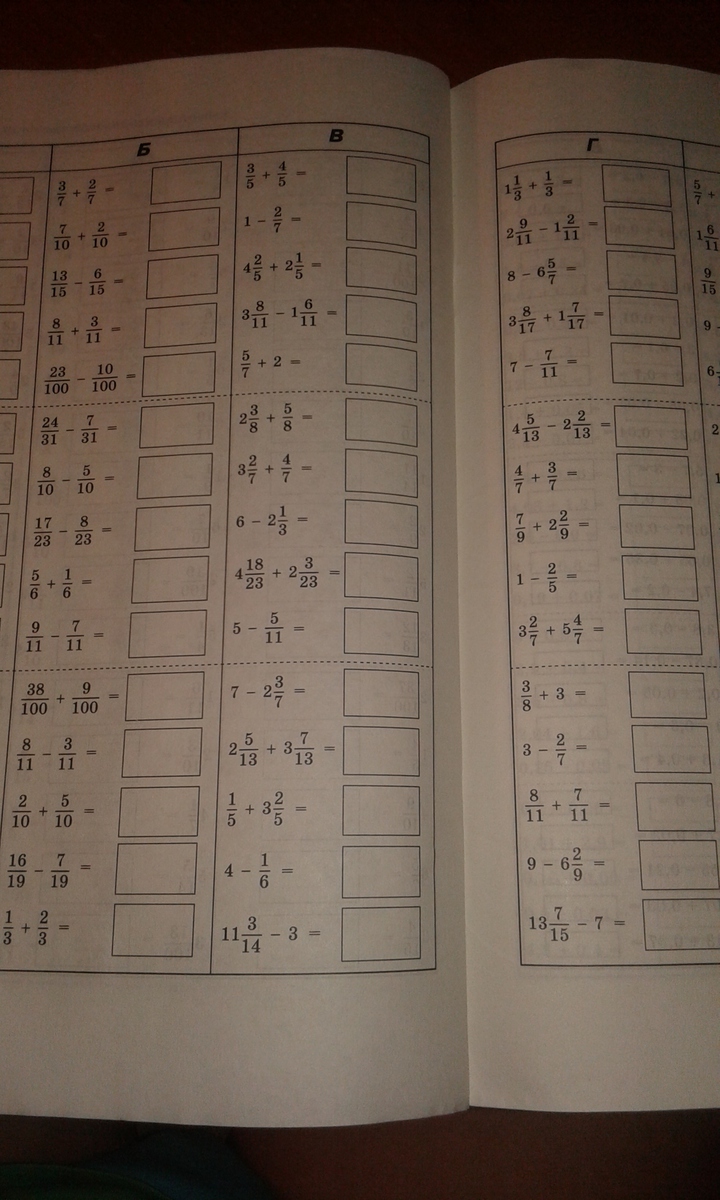 Б
3/7 + 2/7 =
7/10 + 2/10 =
13/15 − 6/15 =
8/11 + 3/11 =
23/100 − 10/100 =
24/31 − 7/31 =
8/10 − 5/10 =
17/23 − 8/23 =
5/6 + 1/6 =
9/11 − 7/11 =
38/100 + 9/100 =
8/11 − 3/11 =
2/10 + 5/10 =
16/19 − 7/19 =
1/3 + 2/3 =
В
3/5 + 4/5 =
1 − 2/7 =
4 2/5 + 2 1/5 =
3 8/11 − 1 6/11 =
5/7 + 2 =
2 3/8 + 5/8 =
3 2/7 + 4/7 =
6 − 2 1/3 =
4 18/23 + 2 3/23 =
5 − 5/11 =
7 − 2 3/7 =
2 5/13 + 3 7/13 =
1/5 + 3 2/5 =
4 − 1/6 =
11 3/14 − 3 =
Г
1 1/3 + 1/3 =
2 9/11 − 1 2/11 =
8 − 6 5/7 =
3 8/17 + 1 7/17 =
7 − 7/11 =
4 5/13 − 2 2/13 =
4/7 + 3/7 =
7/9 + 2 2/9 =
1 − 2/5 =
3 2/7 + 5 4/7 =
3/8 + 3 =
3 − 2/7 =
8/11 + 7/11 =
9 − 6 2/9 =
13 7/15 − 7 =
5/7 +
1 6/11
9/15
9 −
6
2
1